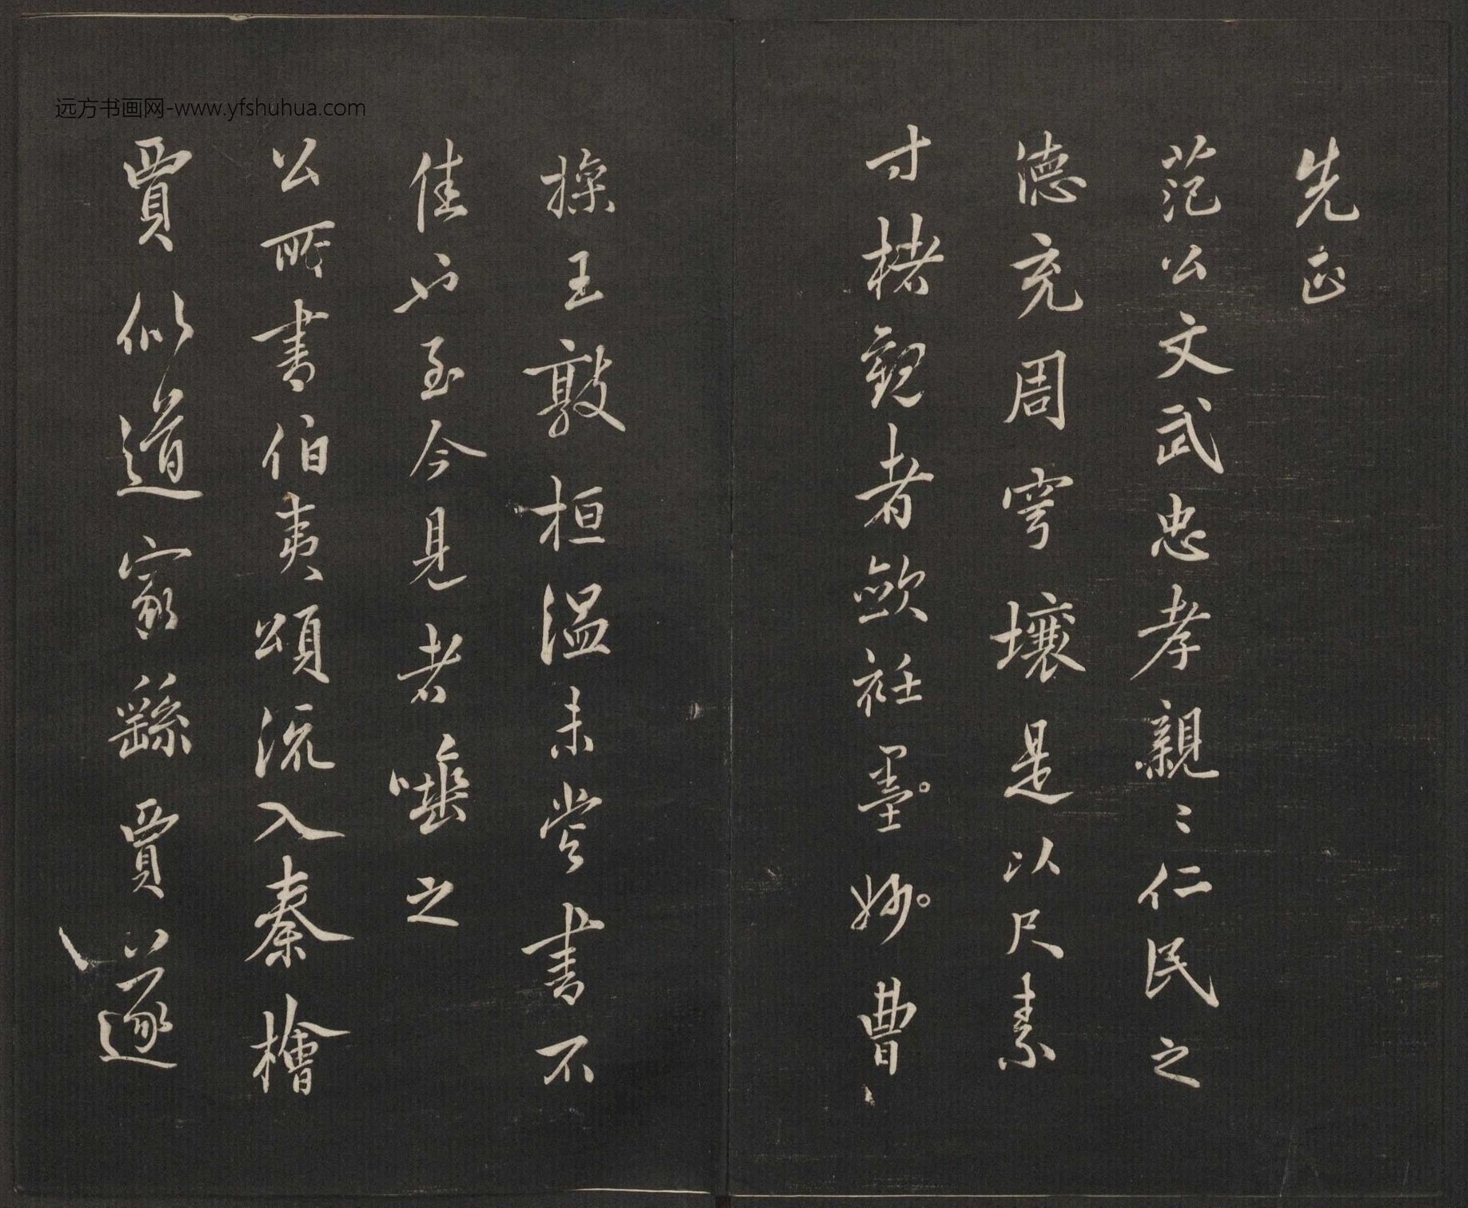 先正
范公文武忠孝親〻仁民之
德充周穹壤是以尺素
寸楮觀者斂衽墨妙曹
操王敦桓温未嘗書不
佳也至今見者唾之
公所書伯夷頌流入秦檜
賈似道家繇賈遂
远方书画网-www.yfshuhua.com